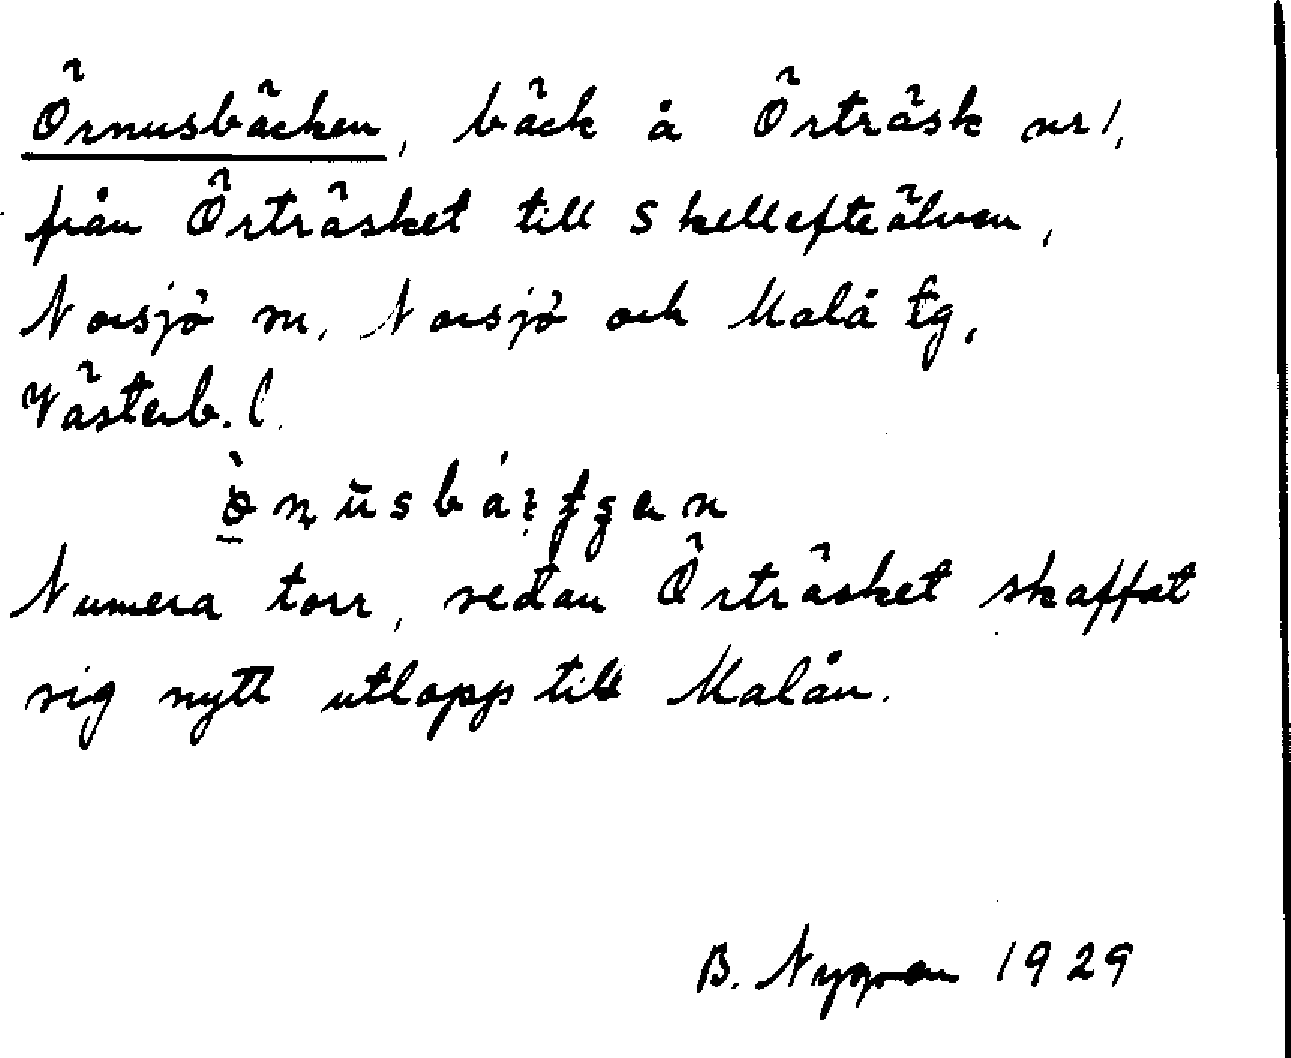 Örnusbäcken, bäck å Örträsk nr 1,
från Örträsket till Skellefteälven,
Norsjö sn, Norsjö och Malå tg,
Västerb. l.
Numera torr, sedan Örträsket skaffat
sig nytt utlopp till Malån.
B. Nygren 1929